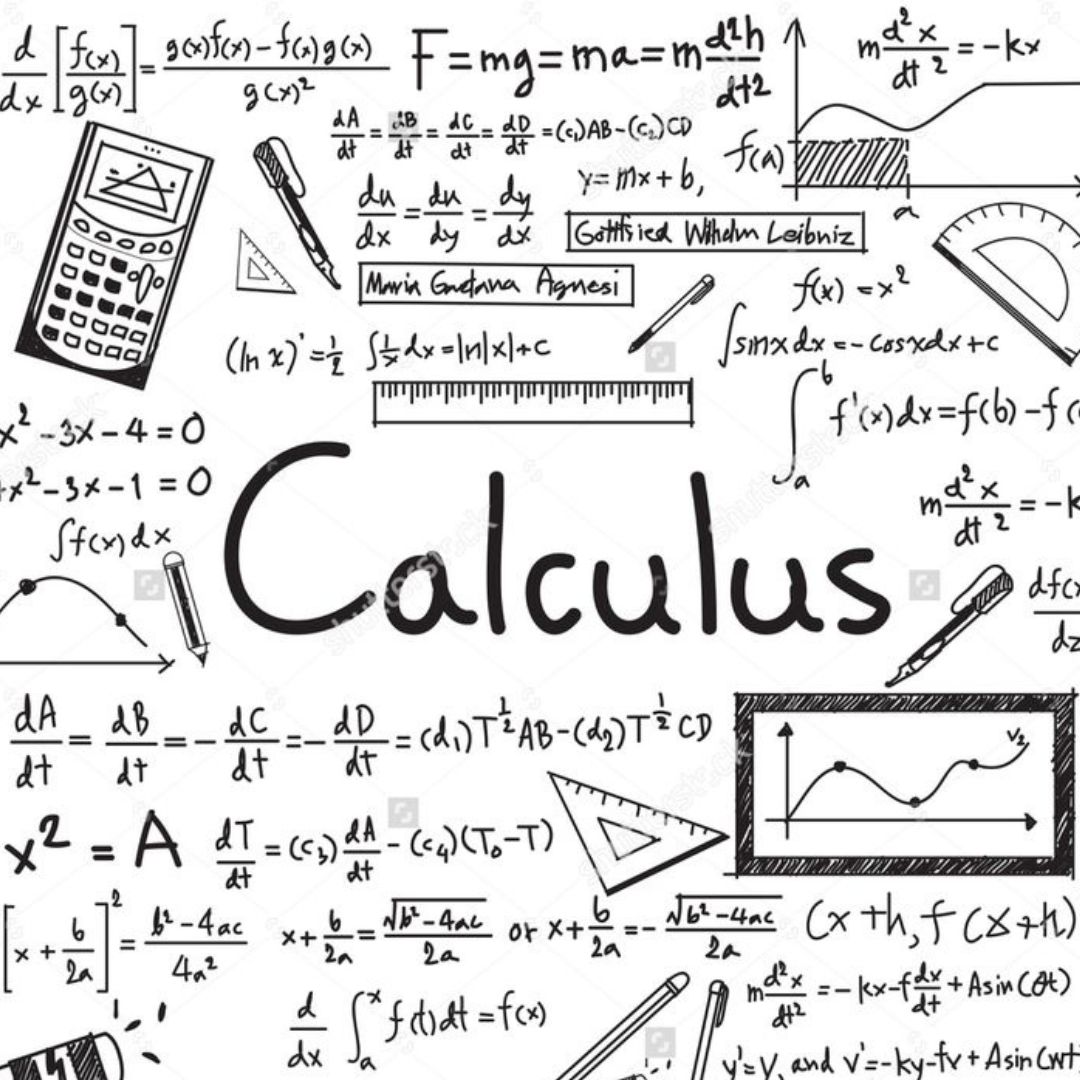 d/dx [f(x)/g(x)] = g(x)f(x) - f(x)g(x) / g(x)²
F = mg = ma = m d²h/dt2
m d²x/dt² = -kx
dA/dt = dB/dt = dC/dt = dD/dt = (c₁)AB-(c₂)CD
f(a)
a
y = mx + b,
du/dx = du/dy = dy/dx
Gottfried Wilhelm Leibniz
Maria Gaetana Agnesi
f(x) = x²
(ln x)' = 1/2
∫1/x dx = ln|x|+c
∫sinx dx = - cosxdx + c
∫ₐᵇ f'(x) dx = f(b) - f(
x² - 3x - 4 = 0
x² - 3x - 1 = 0
∫f(x) dx
Calculus
m d²x/dt² = -k
df(x
dz
dA/dt = dB/dt = - dC/dt = - dD/dt = (d₁)T^½ AB-(d₂)T^½ CD
V₂
x² = A
dT/dt = (c₃) dA/dt - (c₄)(T₀-T)
[x + b/2a]² = b²-4ac/4a²
x + b/2a = √b²-4ac/2a or x + b/2a = - √b²-4ac/2a
(x+h, f(x+h)
d/dx ∫ₐˣ f(t)dt = f(x)
m d²x/dt² = - kx-f dx/dt + Asin(θt)
y'=V, and v'=-ky-fv + Asin(wt
shutterstock